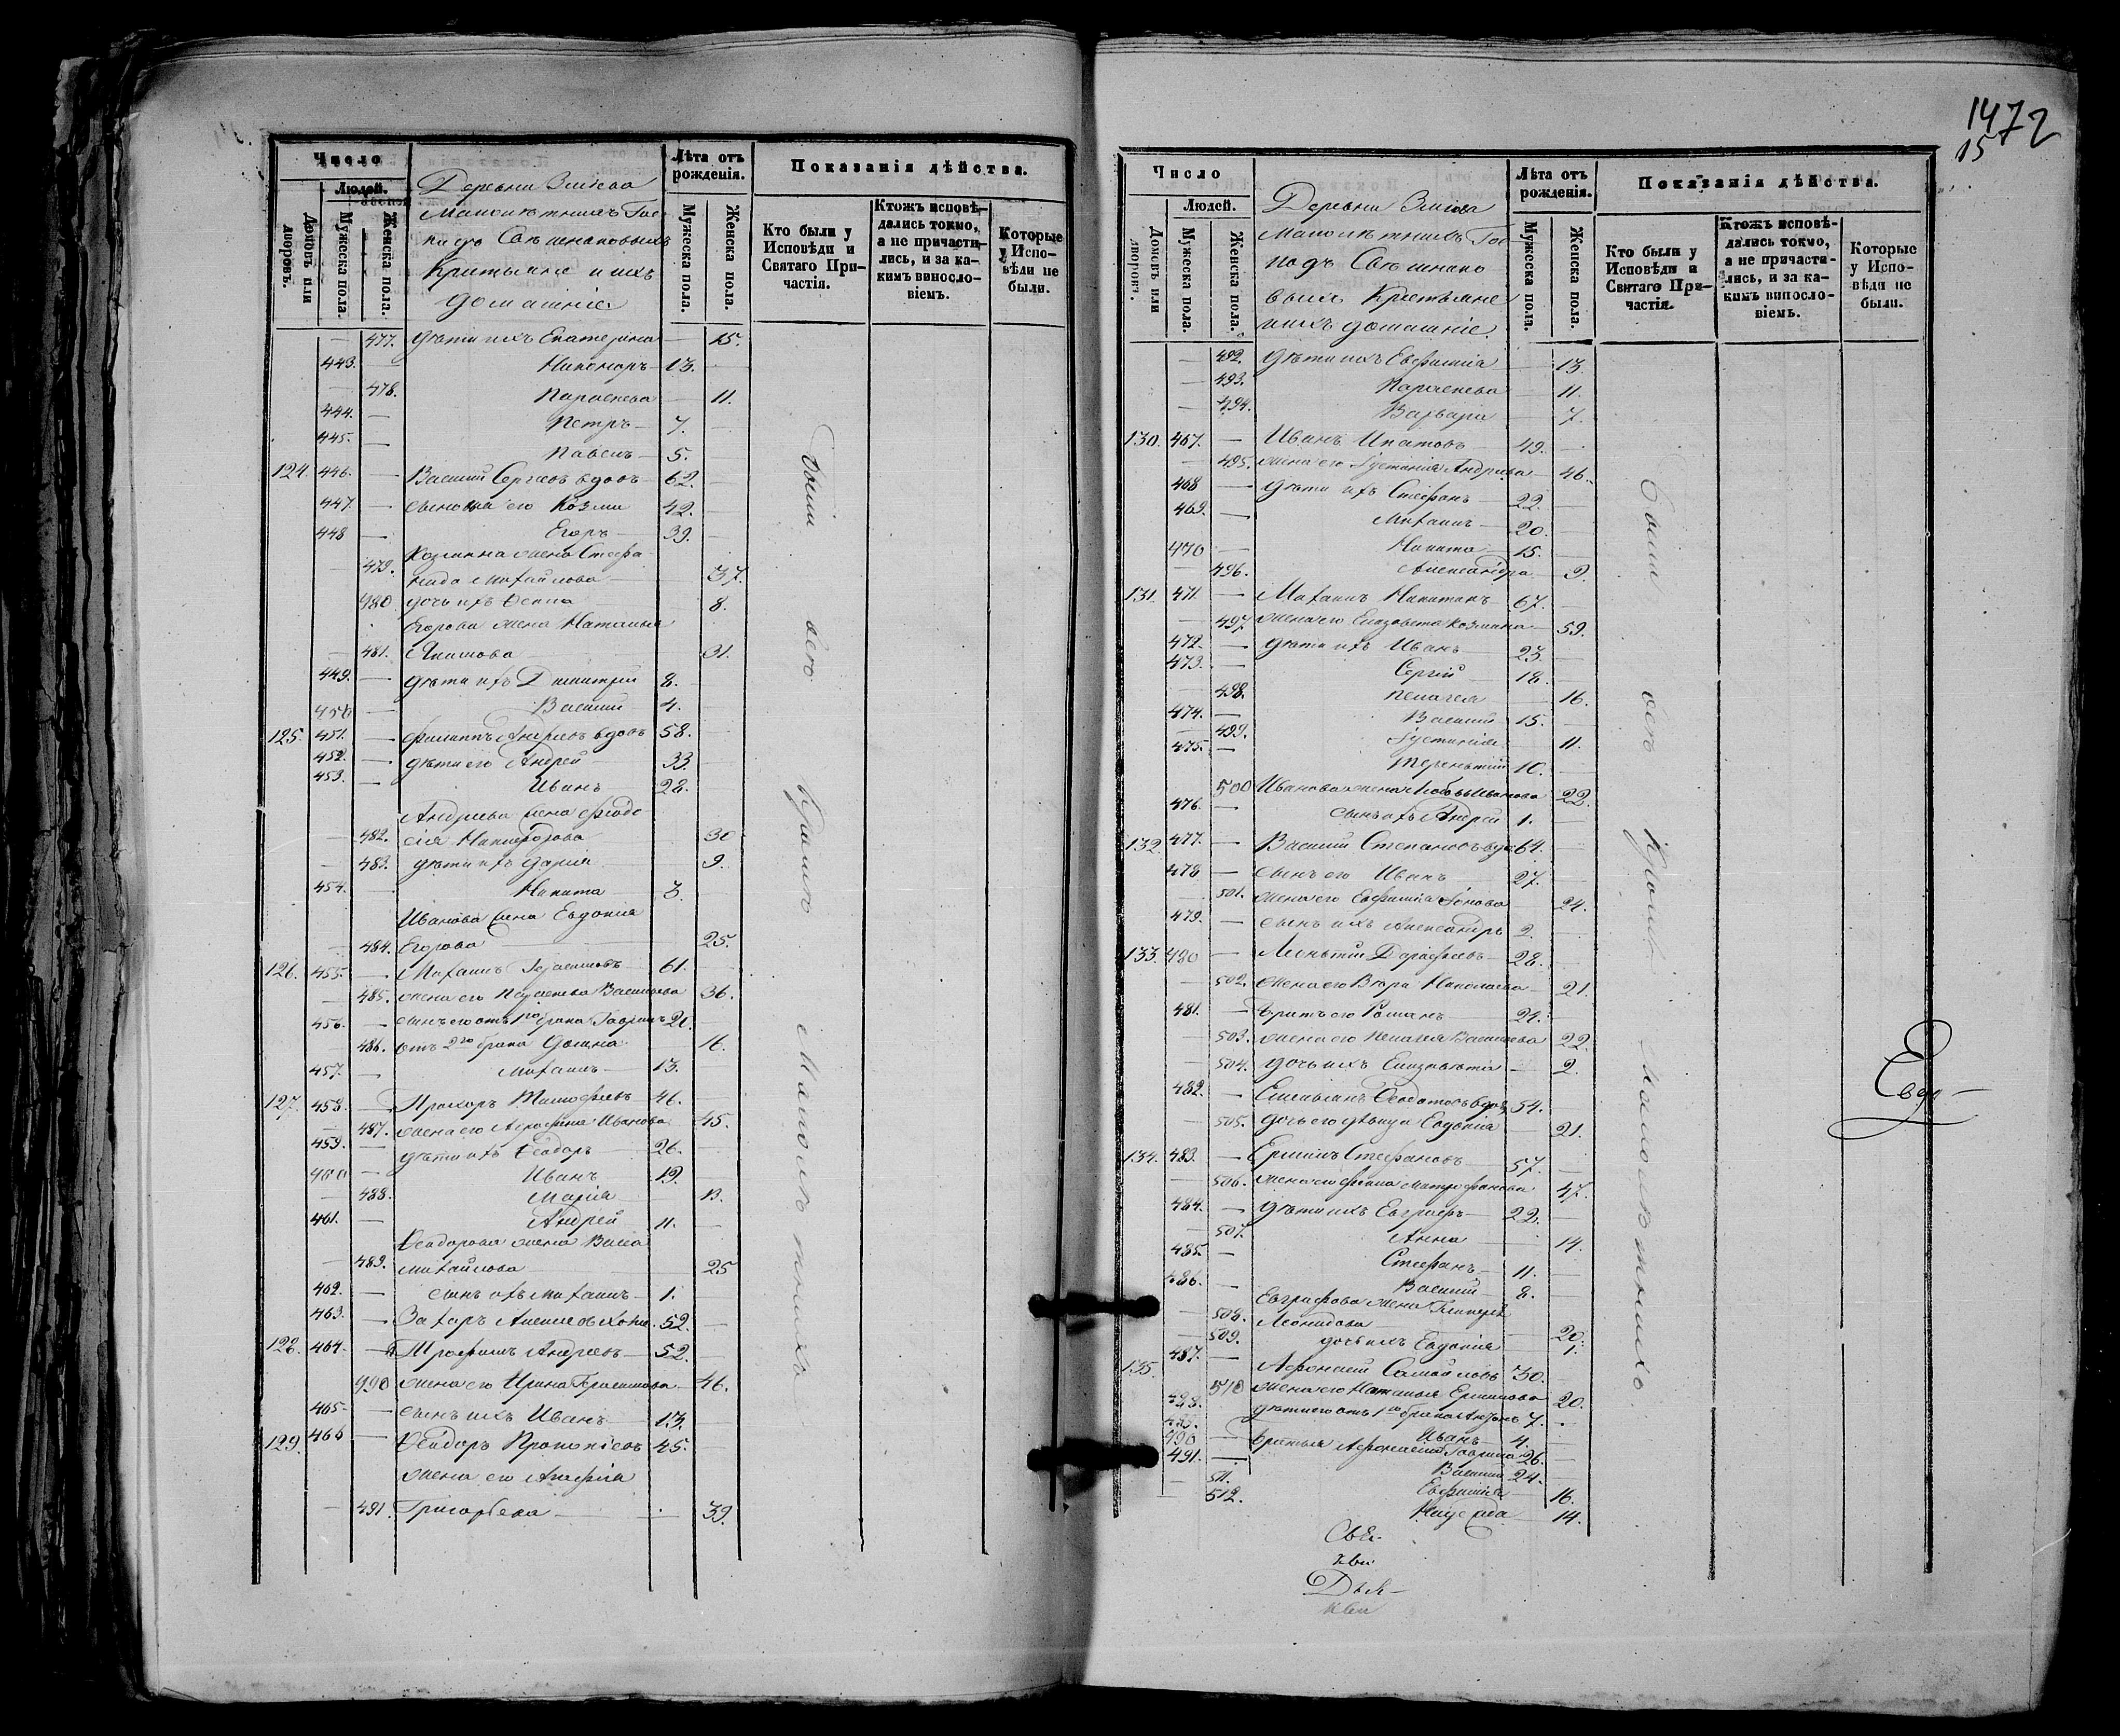 1472
15
Число
Людей.
Домовъ или дворовъ.
Мужеска пола.
Женска пола.
Деревни
Малолѣтныхъ Гос-
подъ
Крестьяне и ихъ
домашніе
Лѣта отъ рожденія.
Мужеска пола.
Женска пола.
Показанія дѣйства.
Кто были у Исповѣди и Святаго При-частія.
Ктожъ исповѣ-дались токмо, а не причасти-лись, и за ка-кимъ винослo-віемъ.
Которые у Испо-вѣди не были.
477. дѣти ихъ Екатерина 15.
443. Никаноръ 13.
478. Параскева 11.
444. Петръ 7.
445. Павелъ 5.
124. 446. Василій Сергѣевъ вдовъ 62.
447. сыновья его Козма 42.
448 Егоръ 39.
Козмина жена Стефа-
479. нида Михайлова 37.
480 дочь ихъ Ѳекла 8.
Егорова жена Наталья
481. Якимова 31.
449. дѣти ихъ Димитрій 8.
450 Василій 4.
125. 451. Филиппъ Андреевъ вдовъ 58.
452. дѣти его Андрей 33.
453. Иванъ 28.
Андреева жена Феодо-
482. сія Никифорова 30
483. дѣти ихъ Дарія 9.
454. Никита 3.
Иванова жена Евдокія
484. Егорова 25.
126. 455. Михаилъ Герасимовъ 61.
485. жена его Параскева Васильева 36.
456. сынъ его отъ 1го брака Гаврилъ 21.
486. отъ 2го брака Домна 16.
457. Михаилъ 13.
127. 458. Прохоръ Тимофѣевъ 46.
487. жена его Агрофина Иванова 45.
459. дѣти ихъ Ѳеодоръ 26.
460 Иванъ 19.
488. Марія 13.
461. Андрей 11.
Ѳеодорова жена Васса
489. Михайлова 25
462. сынъ ихъ Михаилъ 1.
463. Захаръ Алексѣевъ 52.
128. 464. Трофимъ Андреевъ 52.
490 жена его Ирина Герасимова 46.
465. сынъ ихъ Иванъ 13.
129. 466 Ѳеодоръ Прокопіевъ 45.
жена его Агафія
491. Григорьева 39.
были всѣ кромѣ малолѣтныхъ
Число
Людей.
Домовъ или дворовъ.
Мужеска пола.
Женска пола.
Деревни
Малолѣтныхъ Гос-
подъ
выхъ Крестьяне
и ихъ домашніе
Лѣта отъ рожденія.
Мужеска пола.
Женска пола.
Показанія дѣйства.
Кто были у Исповѣди и Святаго При-частія.
Ктожъ исповѣ-дались токмо, а не причасти-лись, и за ка-кимъ винослo-віемъ.
Которые у Испо-вѣди не были.
492. дѣти ихъ Евфимія 13.
493. Параскева 11.
494. Варвара 7.
130. 467. Иванъ Ипатовъ 49.
495. жена его Іустинія Андреева 46.
468 дѣти ихъ Стефанъ 22.
469. Михаилъ 20.
470 Никита 15.
496. Александра 9.
131. 471 Михаилъ Никитинъ 67.
497. жена его Елизавета Козмина 59.
472. дѣти ихъ Иванъ 23.
473. Сергій 18.
498. Пелагея 16.
474. Василій 15.
499. Іустинія 11.
475. Терентій 10.
500 Иванова жена Любовь Иванова 22.
476. сынъ ихъ Андрей 1.
132. 477. Василій Степановъ вдо 64.
478 сынъ его Иванъ 27.
501. жена его Евфимія 24.
479. сынъ ихъ Александръ 2.
133. 480 Леонтій Дорофѣевъ 28.
502. жена его Вѣра Николаева 21.
481. братъ его Романъ 22.
503. жена его Пелагея Васильева 22.
504. дочь ихъ Елизавета 2.
482. Емельянъ Ѳедотовъ вдов 54.
505. дочь его дѣвица Евдокія 21.
134. 483. Ермилъ Стефановъ 57.
506. жена его Фекла Митрофанова 47.
484. дѣти ихъ Евграфъ 22.
507. Анна 14.
485. Стефанъ 11.
486. Василій 8.
Евграфова жена Гликерія
508. Леонидова 20.
509. дочь ихъ Евдокія 1.
135. 487. Афонасій Самойловъ 30.
510 жена его Наталья Ермилова 20.
488. дѣти его отъ 1го брака Антонъ 7.
489. Иванъ 4.
490 братья Афонасія Гаврила 26.
491. Василій 24.
511. Евфимія 16.
512. 14.
были всѣ кромѣ малолѣтныхъ